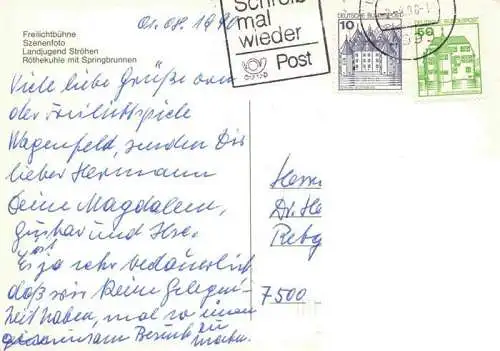 01.08.1980
Freilichtbühne
Szenenfoto
Landjugend Ströhen
Röthekuhle mit Springbrunnen
Schreib
mal
wieder
Post
DEUTSCHE BUNDESPOST
10
DEUTSCHE BUNDESPOST
50
Viele liebe Grüße von
der Freilichtspiele
Wagenfeld, senden Dir
lieber Hermann
Deine Magdalena,
Gustav und Ilse.
Es ist ja sehr bedauerlich
daß wir keine Gelegen-
heit haben, mal so einen
gemeinsam Besuch zu
machen.
Herrn
Dr. He
Rebg
7500